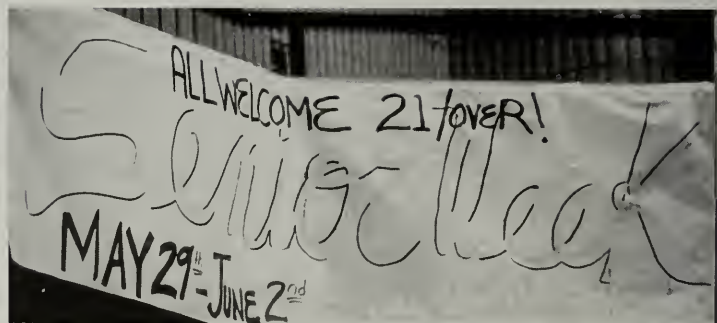 ALL WELCOME 21 + OVER!
Senior Week
MAY 29th - JUNE 2nd